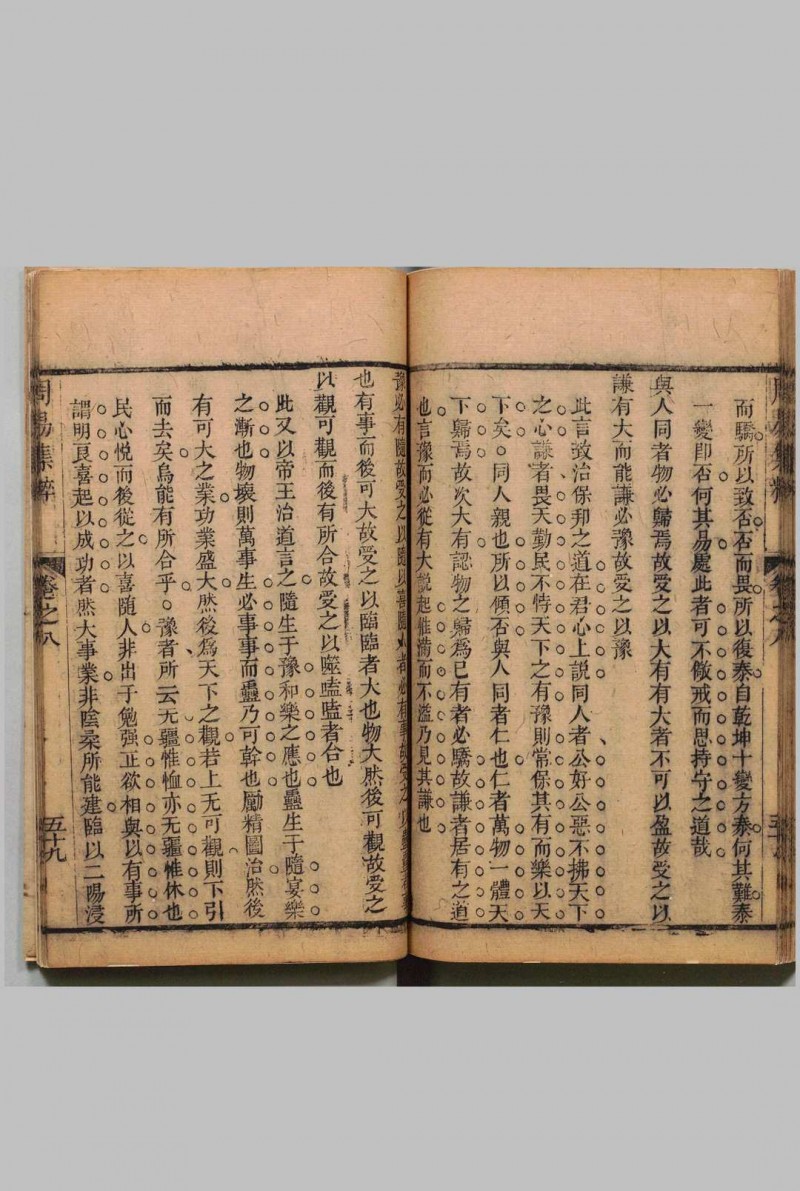 而驕所以致否否而畏所以復泰自乾坤十變方泰何其難泰
一變即否何其易處此者可不儆戒而思持守之道哉
與人同者物必歸焉故受之以大有有大者不可以盈故受之以
謙有大而能謙必豫故受之以豫
此言致治保邦之道在君心上説同人者公好公惡不拂天下
之心謙者畏天勤民不恃天下之有豫則常保其有而樂以天
下矣同人親也所以傾否與人同者仁也仁者萬物一體天
下歸焉故次大有認物之歸為已有者必驕故謙者居有之道
也言豫而必從有大説起惟滿而不溢乃見其謙也
豫必有隨故受之以隨以喜隨人者必有事故受之以蠱蠱者事
也有事而後可大故受之以臨臨者大也物大然後可觀故受之
以觀可觀而後有所合故受之以噬嗑嗑者合也
此又以帝王治道言之隨生于豫和樂之應也蠱生于隨宴樂
之漸也物壞則萬事生必事事而蠱乃可幹也勵精圖治然後
有可大之業功業盛大然後為天下之觀若上无可觀則下引
而去矣烏能有所合乎豫者所云无疆惟恤亦无疆惟休也
民心悅而後從之以喜隨人非出于勉强正欲相與以有事所
謂明良喜起以成功者然大事業非陰柔所能建臨以二陽浸
周易集粹
卷之八
五十九